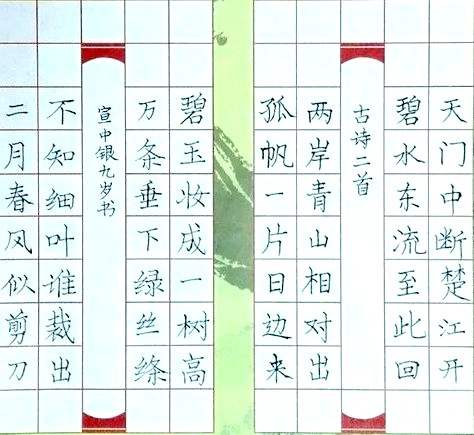 天门中断楚江开
碧水东流至此回
古诗二首
两岸青山相对出
孤帆一片日边来
碧玉妆成一树高
万条垂下绿丝绦
宣中银九岁书
不知细叶谁裁出
二月春风似剪刀